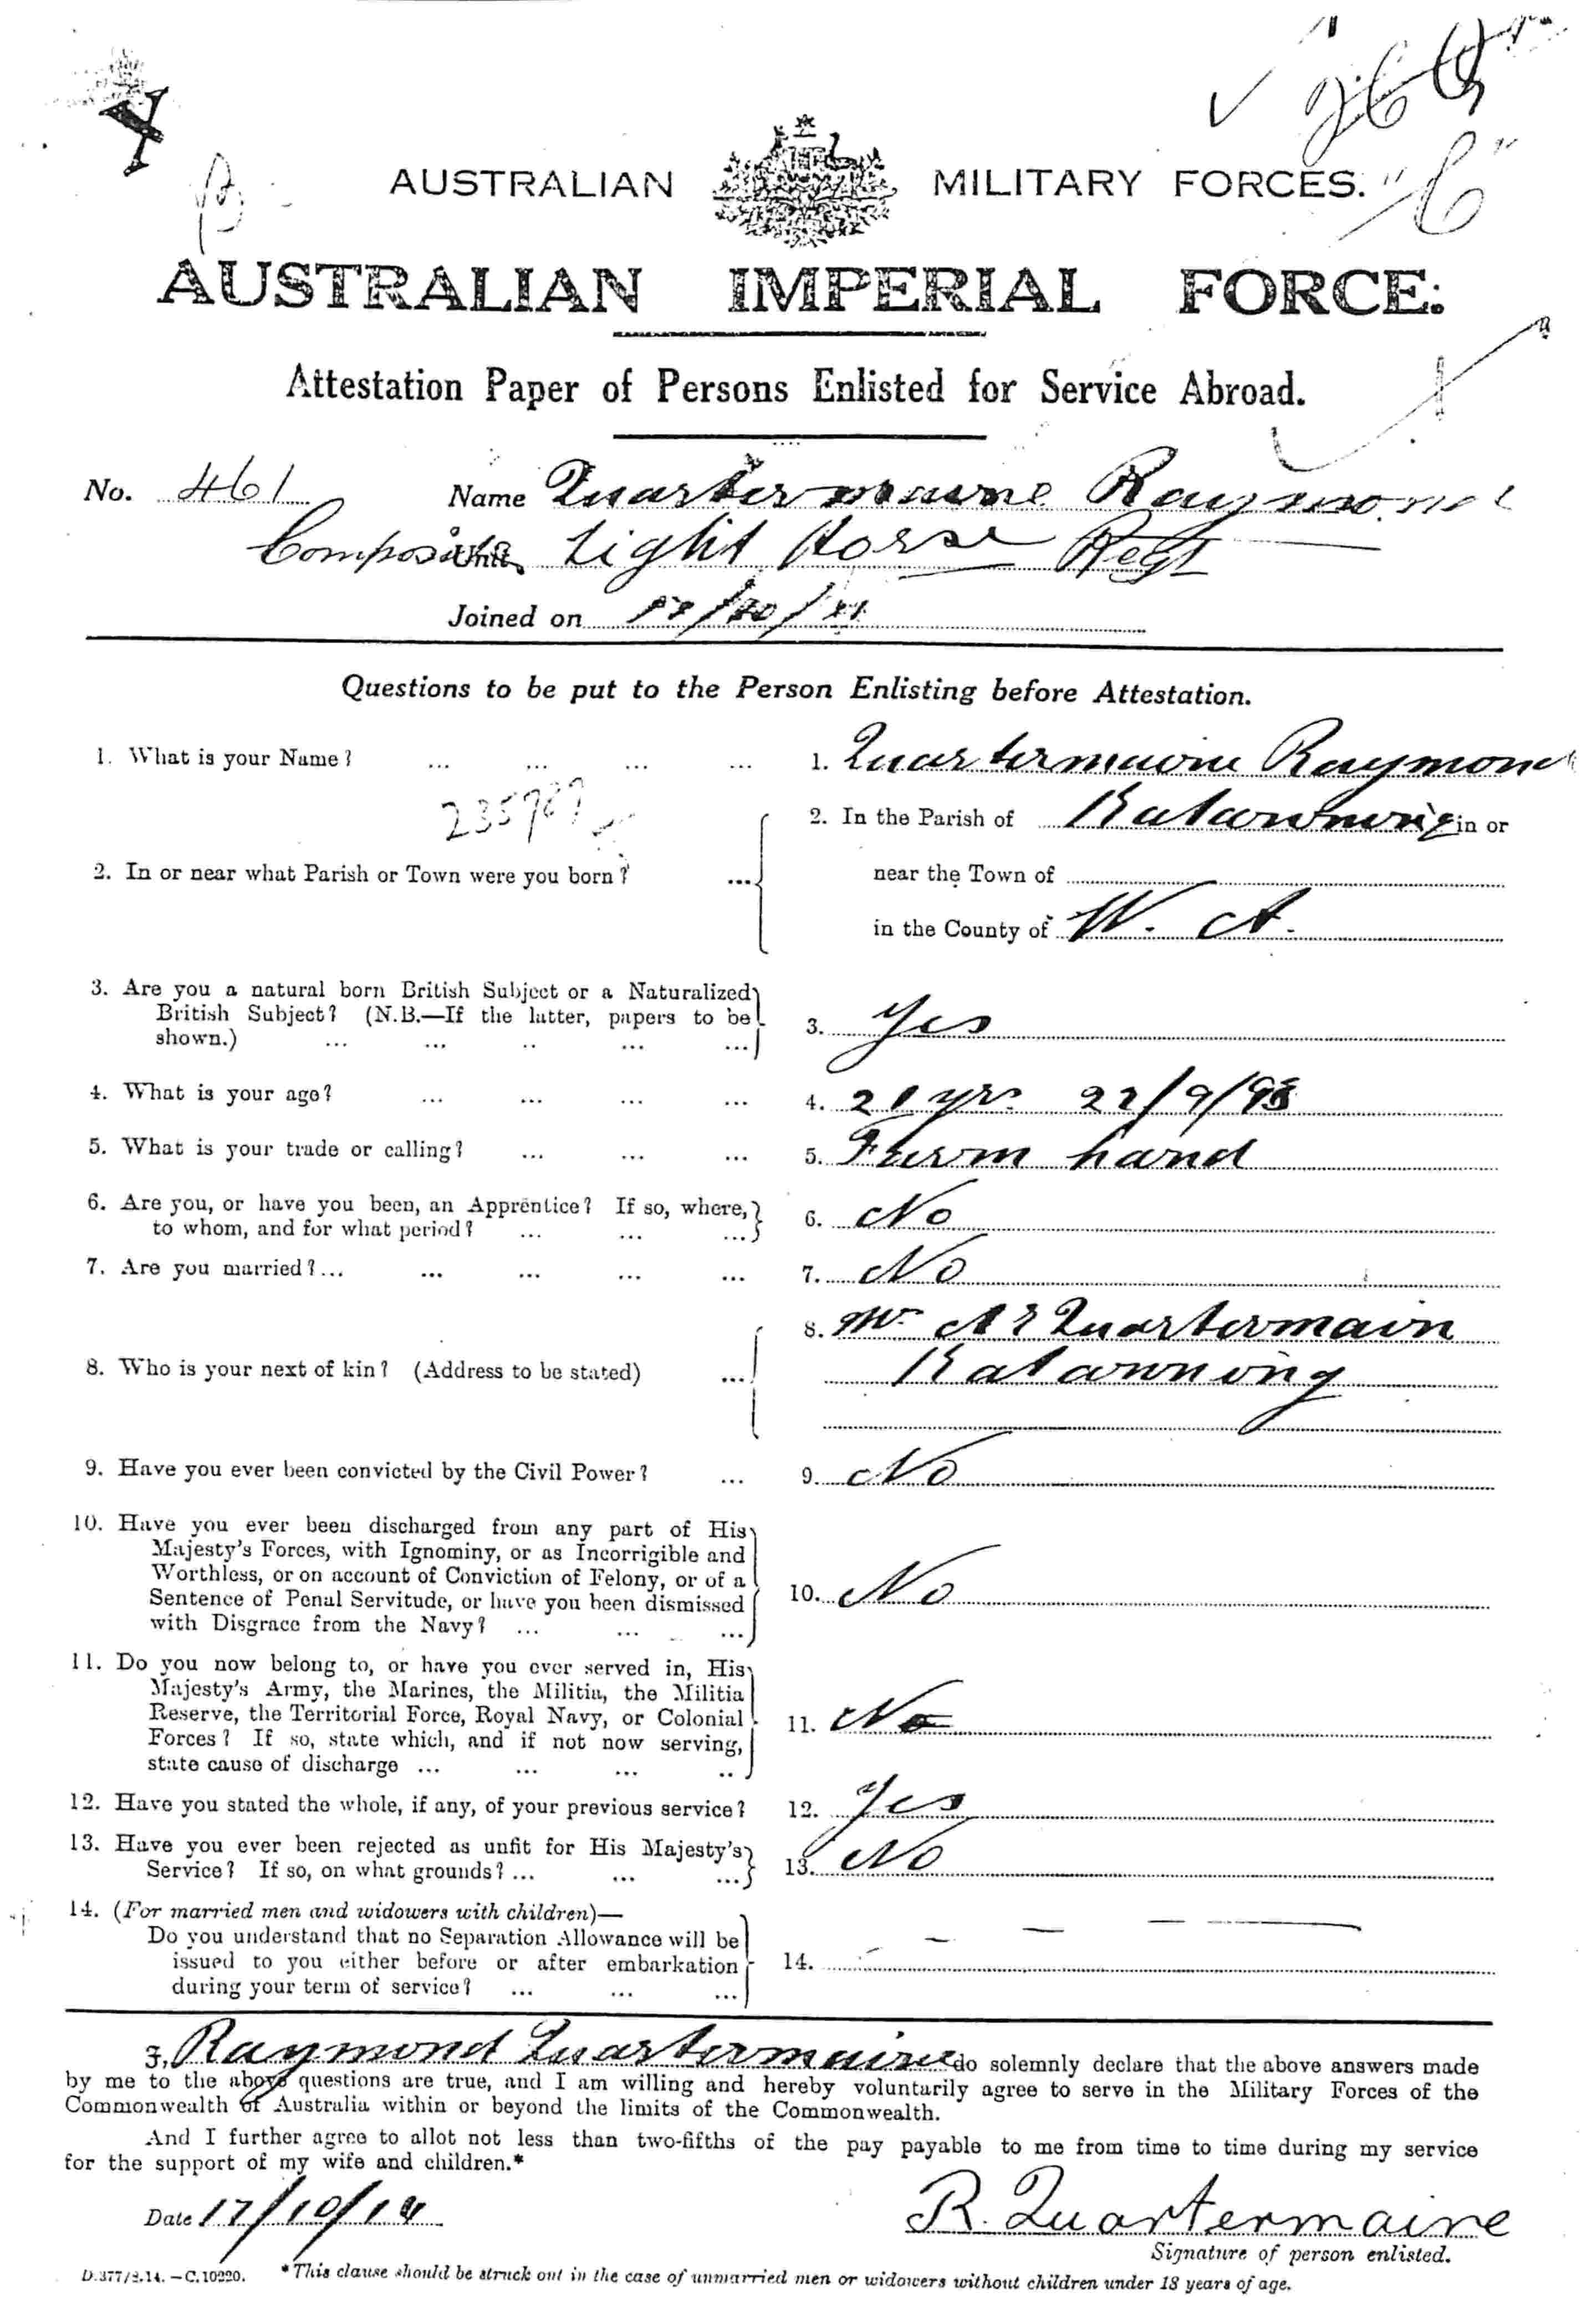 AUSTRALIAN MILITARY FORCES. "C"
AUSTRALIAN IMPERIAL FORCE.
Attestation Paper of Persons Enlisted for Service Abroad.
No. 461 Name Quartermaine Raymond
Composite Light Horse Regt
Joined on
Questions to be put to the Person Enlisting before Attestation.
1. What is your Name? ... ... ... ... 1. Quartermaine Raymond
2. In the Parish of Katanning in or
2. In or near what Parish or Town were you born? ... near the Town of
in the County of W. A.
3. Are you a natural born British Subject or a Naturalized
British Subject? (N.B.—If the latter, papers to be
shown.) ... ... .. ... ... 3. Yes
4. What is your age? ... ... ... ... 4. 21 yrs 22/9/93
5. What is your trade or calling? ... ... ... 5. Farm hand
6. Are you, or have you been, an Apprentice? If so, where,
to whom, and for what period? ... ... ... 6. No
7. Are you married?... ... ... ... ... 7. No
8. Mr A E Quartermain
8. Who is your next of kin? (Address to be stated) ... Katanning
9. Have you ever been convicted by the Civil Power? ... 9. No
10. Have you ever been discharged from any part of His
Majesty's Forces, with Ignominy, or as Incorrigible and
Worthless, or on account of Conviction of Felony, or of a
Sentence of Penal Servitude, or have you been dismissed
with Disgrace from the Navy? ... ... ... 10. No
11. Do you now belong to, or have you ever served in, His
Majesty's Army, the Marines, the Militia, the Militia
Reserve, the Territorial Force, Royal Navy, or Colonial
Forces? If so, state which, and if not now serving,
state cause of discharge ... ... ... .. 11. No
12. Have you stated the whole, if any, of your previous service? 12. Yes
13. Have you ever been rejected as unfit for His Majesty's
Service? If so, on what grounds? ... ... ... 13. No
14. (For married men and widowers with children)—
Do you understand that no Separation Allowance will be
issued to you either before or after embarkation
during your term of service? ... ... ... 14. — — — —
I, Raymond Quartermaine do solemnly declare that the above answers made
by me to the above questions are true, and I am willing and hereby voluntarily agree to serve in the Military Forces of the
Commonwealth of Australia within or beyond the limits of the Commonwealth.
And I further agree to allot not less than two-fifths of the pay payable to me from time to time during my service
for the support of my wife and children.*
Date 17/10/14 R. Quartermaine
Signature of person enlisted.
D.377/8.14.—C.10220. *This clause should be struck out in the case of unmarried men or widowers without children under 18 years of age.